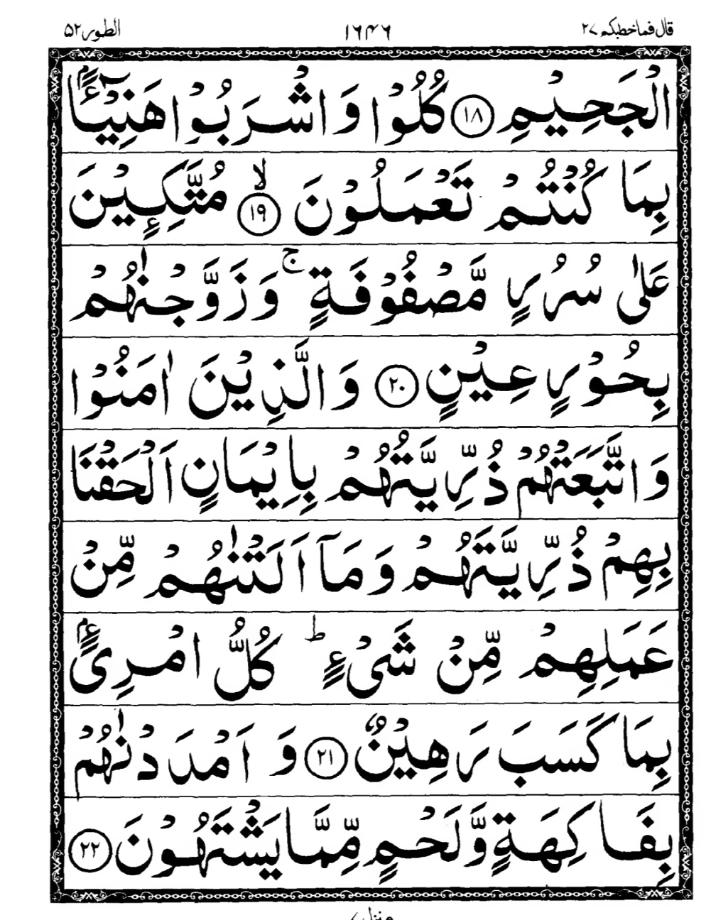 قال فماخطبکم ۲۷ ۱۶۴۶ الطور ۵۲
الْجَحِيْمِ ۱۸ كُلُوْا وَاشْرَبُوْا هَنِيْٓـًٔاۢ
بِمَا كُنْتُمْ تَعْمَلُوْنَ ۙ ۱۹ مُتَّكِـِٕيْنَ
عَلٰى سُرُرٍ مَّصْفُوْفَةٍ ۚ وَزَوَّجْنٰهُمْ
بِحُوْرٍ عِيْنٍ ۲۰ وَالَّذِيْنَ اٰمَنُوْا
وَاتَّبَعَتْهُمْ ذُرِّيَّتُهُمْ بِاِيْمَانٍ اَلْحَقْنَا
بِهِمْ ذُرِّيَّتَهُمْ وَمَآ اَلَتْنٰهُمْ مِّنْ
عَمَلِهِمْ مِّنْ شَيْءٍ ؕ كُلُّ امْرِئٍۢ
بِمَا كَسَبَ رَهِيْنٌ ۲۱ وَاَمْدَدْنٰهُمْ
بِفَاكِهَةٍ وَّلَحْمٍ مِّمَّا يَشْتَهُوْنَ ۲۲
منزل ۷